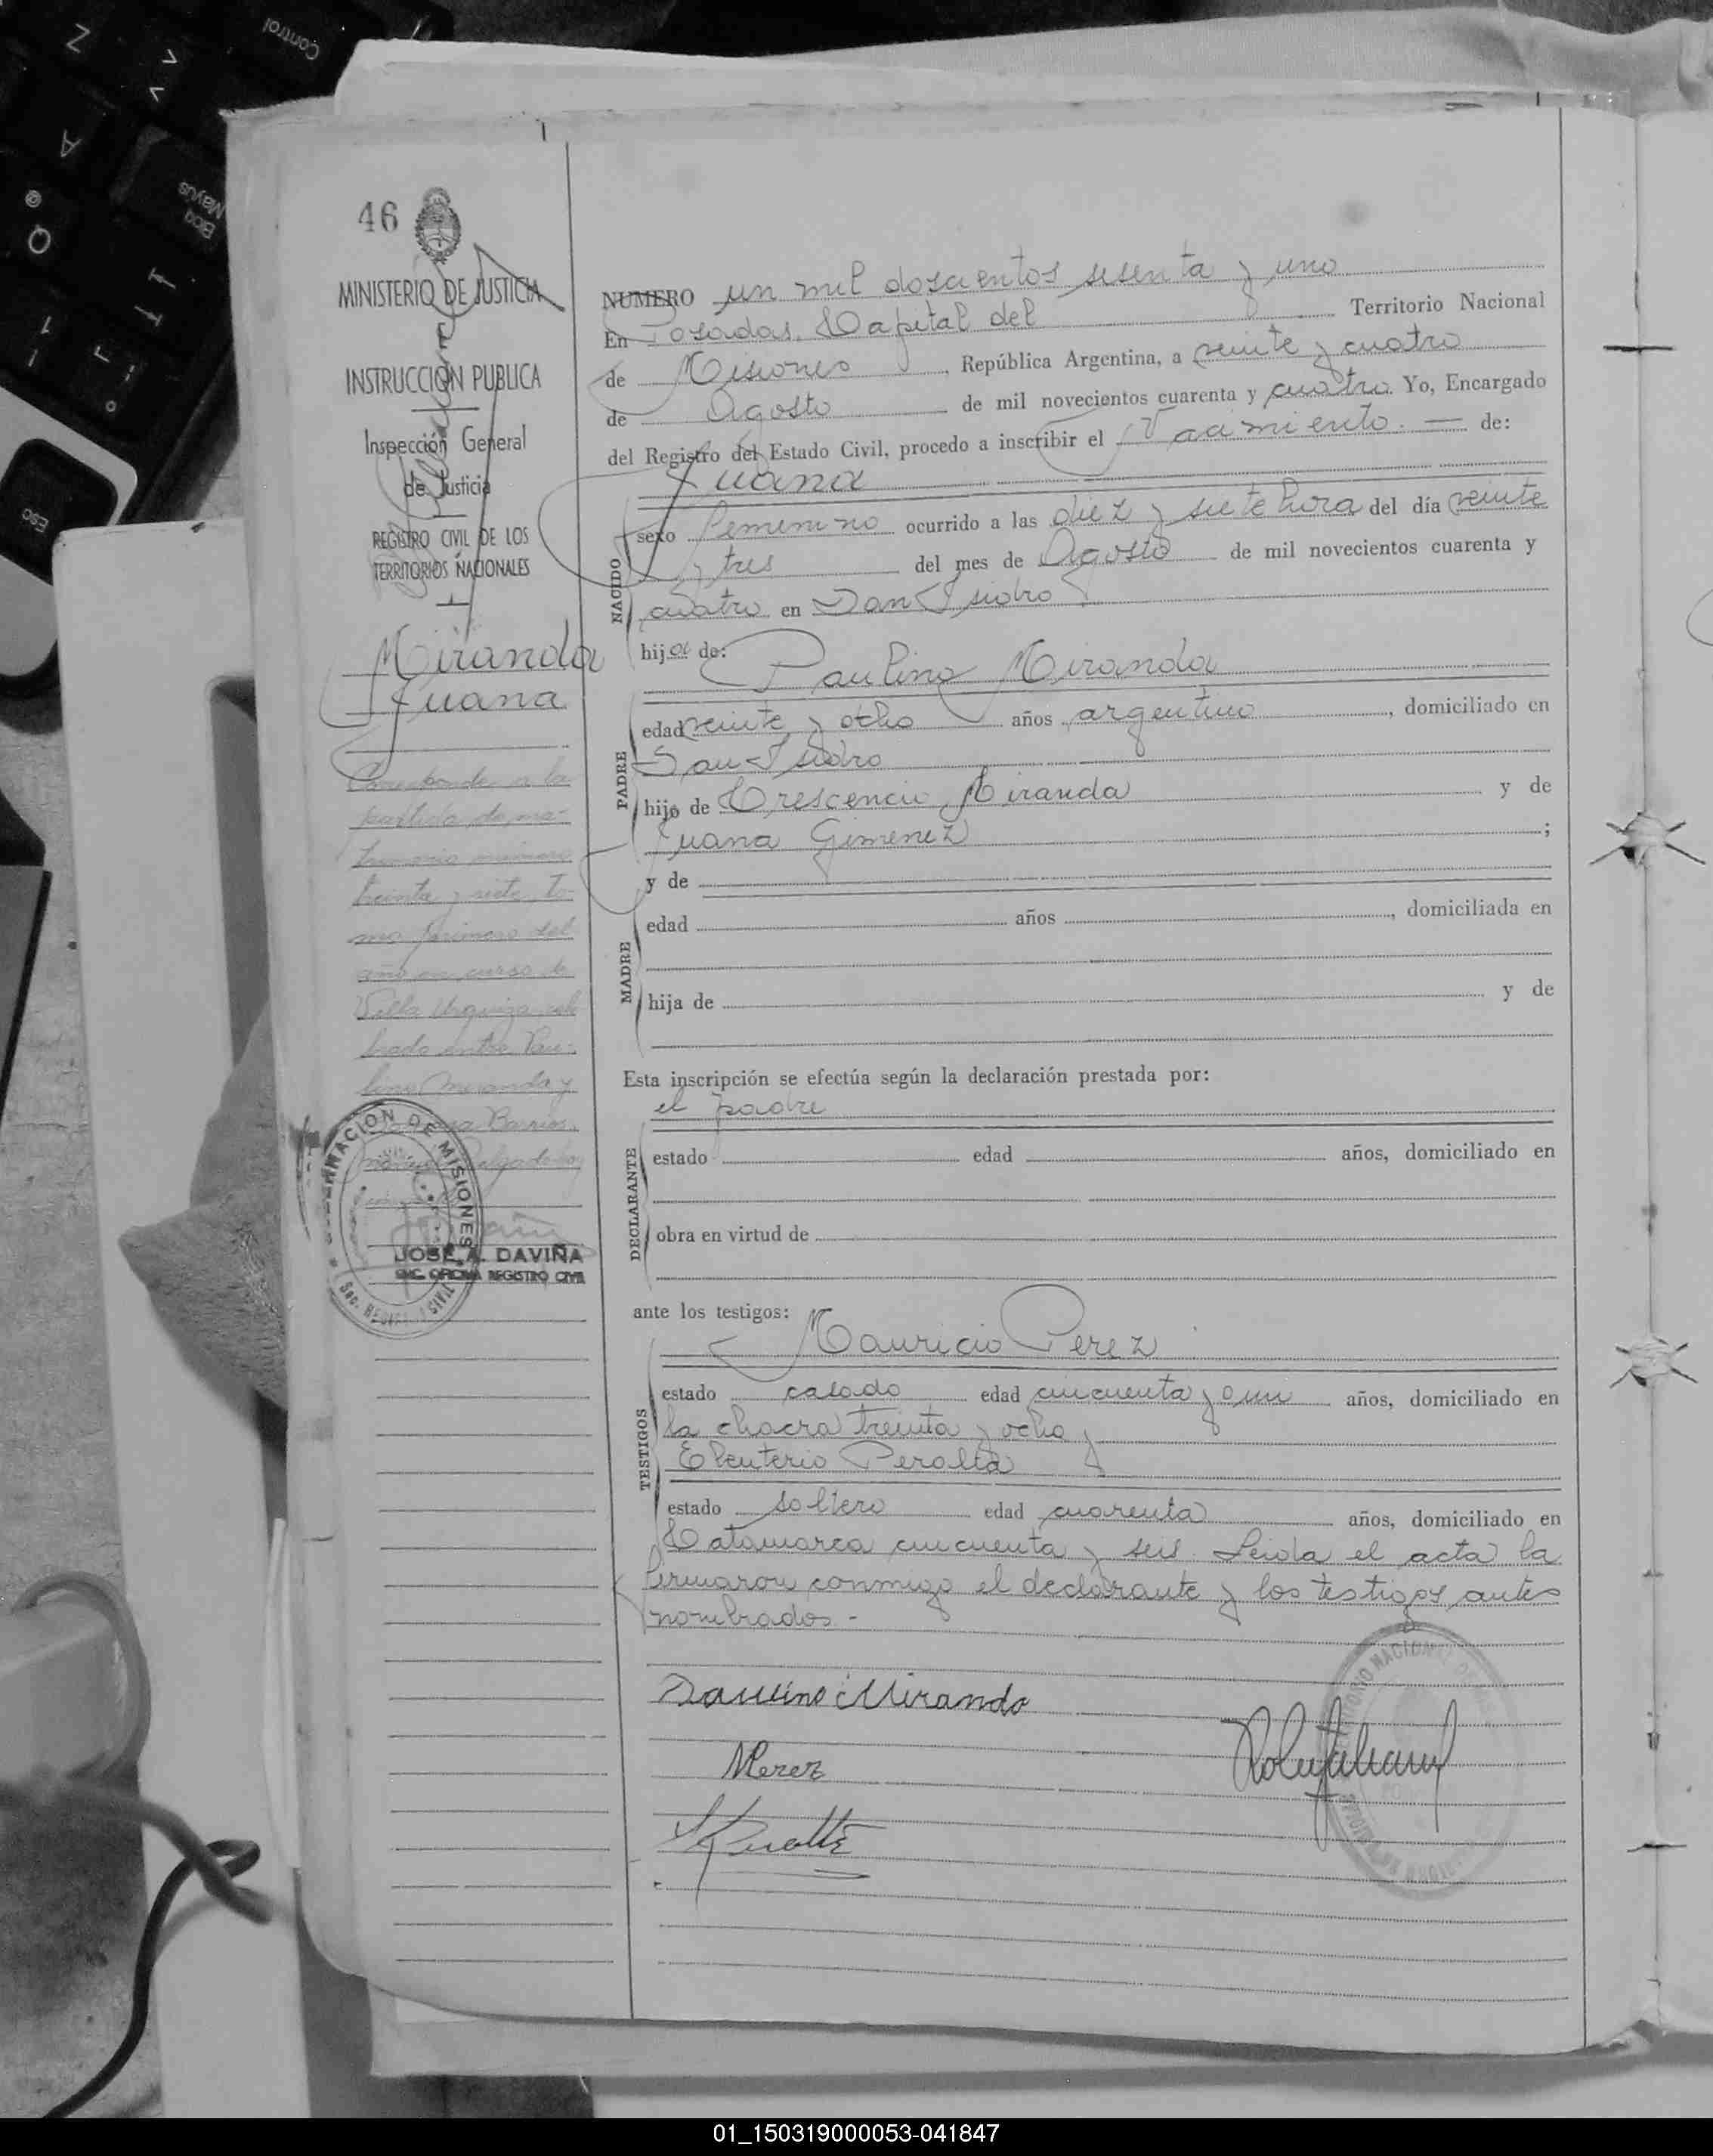 46
MINISTERIO DE JUSTICIA
INSTRUCCIÓN PUBLICA
Inspección General
de Justicia
REGISTRO CIVIL DE LOS
TERRITORIOS NACIONALES
Miranda
Juana
Corresponde a la
partida de ma-
trimonio número
treinta y siete, to-
mo primero del
año en curso de
Villa Urquiza cele
brado entre Pau-
lino Miranda y
Barrios.
GOBERNACION DE MISIONES
JOSE A. DAVIÑA
ENC. OFICINA REGISTRO CIVIL
NUMERO un mil doscientos sesenta y uno
En Posadas, Capital del Territorio Nacional
de Misiones, República Argentina, a veinte y cuatro
de Agosto de mil novecientos cuarenta y cuatro. Yo, Encargado
del Registro del Estado Civil, procedo a inscribir el Nacimiento. — de:
Juana
NACIDO
sexo femenino ocurrido a las diez y siete hora del día veinte
y tres del mes de Agosto de mil novecientos cuarenta y
cuatro en San Isidro
hija de:
Paulino Miranda
PADRE
edad veinte y ocho años argentino, domiciliado en
San Isidro
hijo de Crescencio Miranda y de
Juana Gimenez;
y de
MADRE
edad años, domiciliada en
hija de y de
Esta inscripción se efectúa según la declaración prestada por:
el padre
DECLARANTE
estado edad años, domiciliado en
obra en virtud de
ante los testigos:
Mauricio Perez
TESTIGOS
estado casado edad cincuenta y un años, domiciliado en
la chacra treinta y ocho y
Eleuterio Peralta
estado soltero edad cuarenta años, domiciliado en
Catamarca cincuenta y seis. Leida el acta la
firmaron conmigo el declarante y los testigos antes
nombrados.-
Paulino Miranda
MPerez
Peralta
01_150319000053-041847